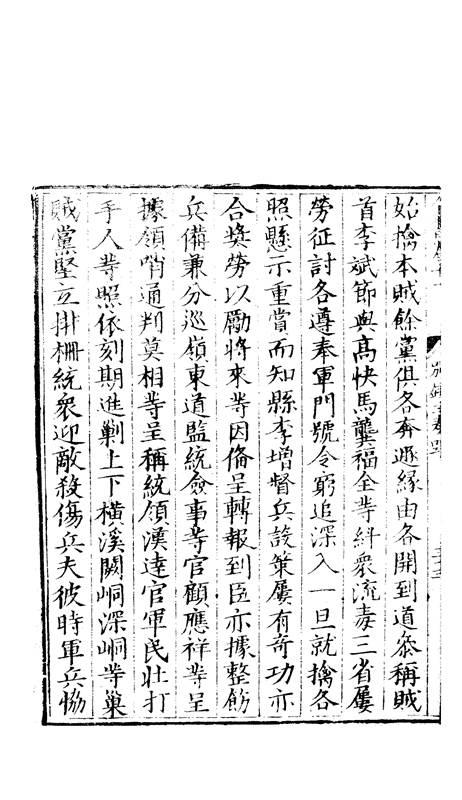 始擒本賊餘黨俱各奔遯緣由各開到道叅稱賊
首李斌節與高快馬龔福全等糾衆流毒三省屢
勞征討各遵奉軍門號令窮追深入一旦就擒各
照懸示重賞而知縣李增督兵設策屢有奇功亦
合奬勞以勵將來等因俻呈轉報到臣亦據整飭
兵備兼分巡嶺東道監統僉事等官顧應祥等呈
據領哨通判莫相等呈稱統領漢達官軍民壯打
手人等照依刻期進剿上下橫溪闕峒深峒等巢
賊黨堅立排柵統衆迎敵殺傷兵夫彼時軍兵恊